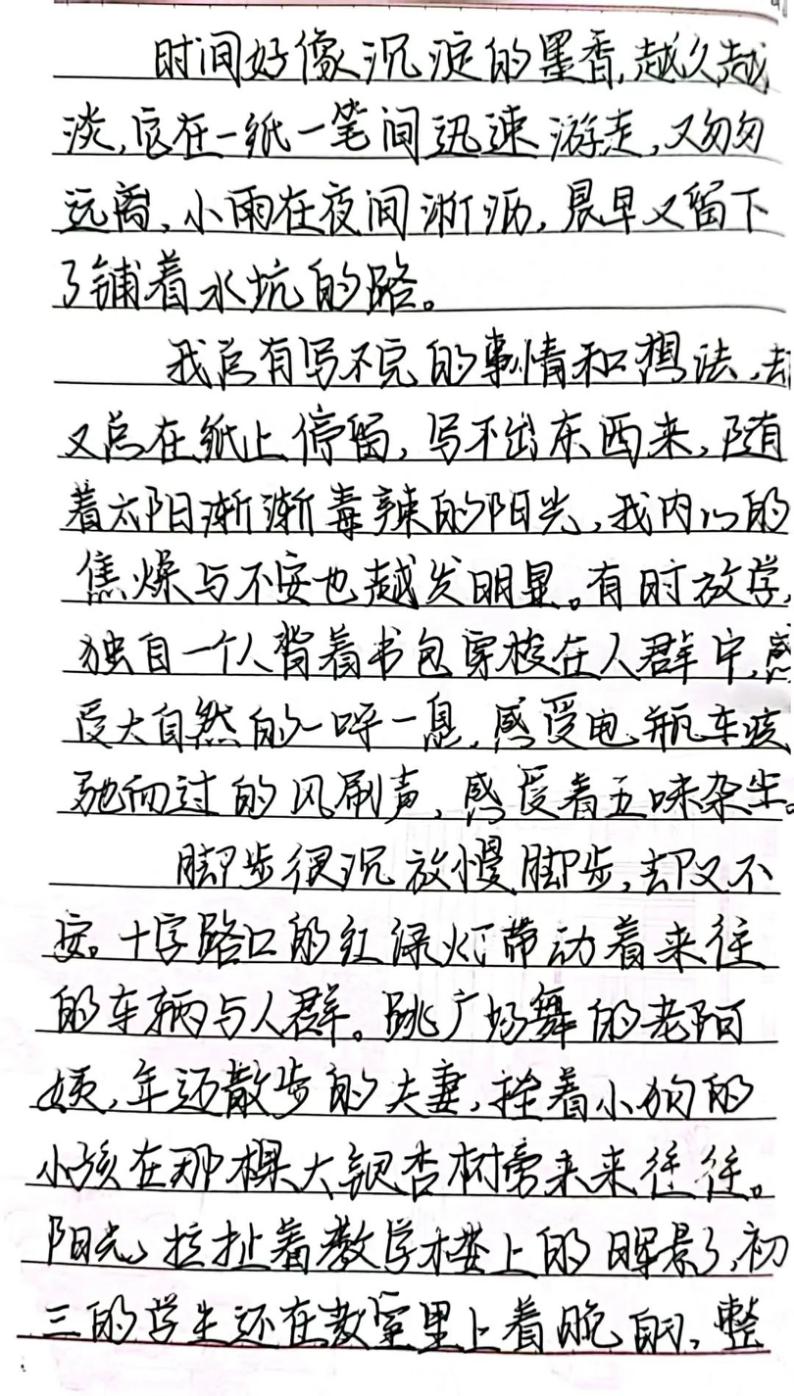 时间好像沉淀的墨香,越久越
淡,它在一纸一笔间迅速游走,又匆匆
远离,小雨在夜间淅沥,晨早又留下
了铺着水坑的路。
我总有写不完的事情和想法,却
又总在纸上停留,写不出东西来,随
着太阳渐渐毒辣的阳光,我内心的
焦燥与不安也越发明显。有时放学,
独自一个人背着书包穿梭在人群中,感
受大自然的一呼一息,感受电瓶车疾
驰而过的风刷声,感受着五味杂尘。
脚步很沉放慢脚步,却又不
安。十字路口的红绿灯带动着来往
的车辆与人群。跳广场舞的老阿
姨,年迈散步的夫妻,拴着小狗的
小孩在那棵大银杏树旁来来往往。
阳光拉扯着教学楼上的晖影,初
三的学生还在教室里上着晚自习,整